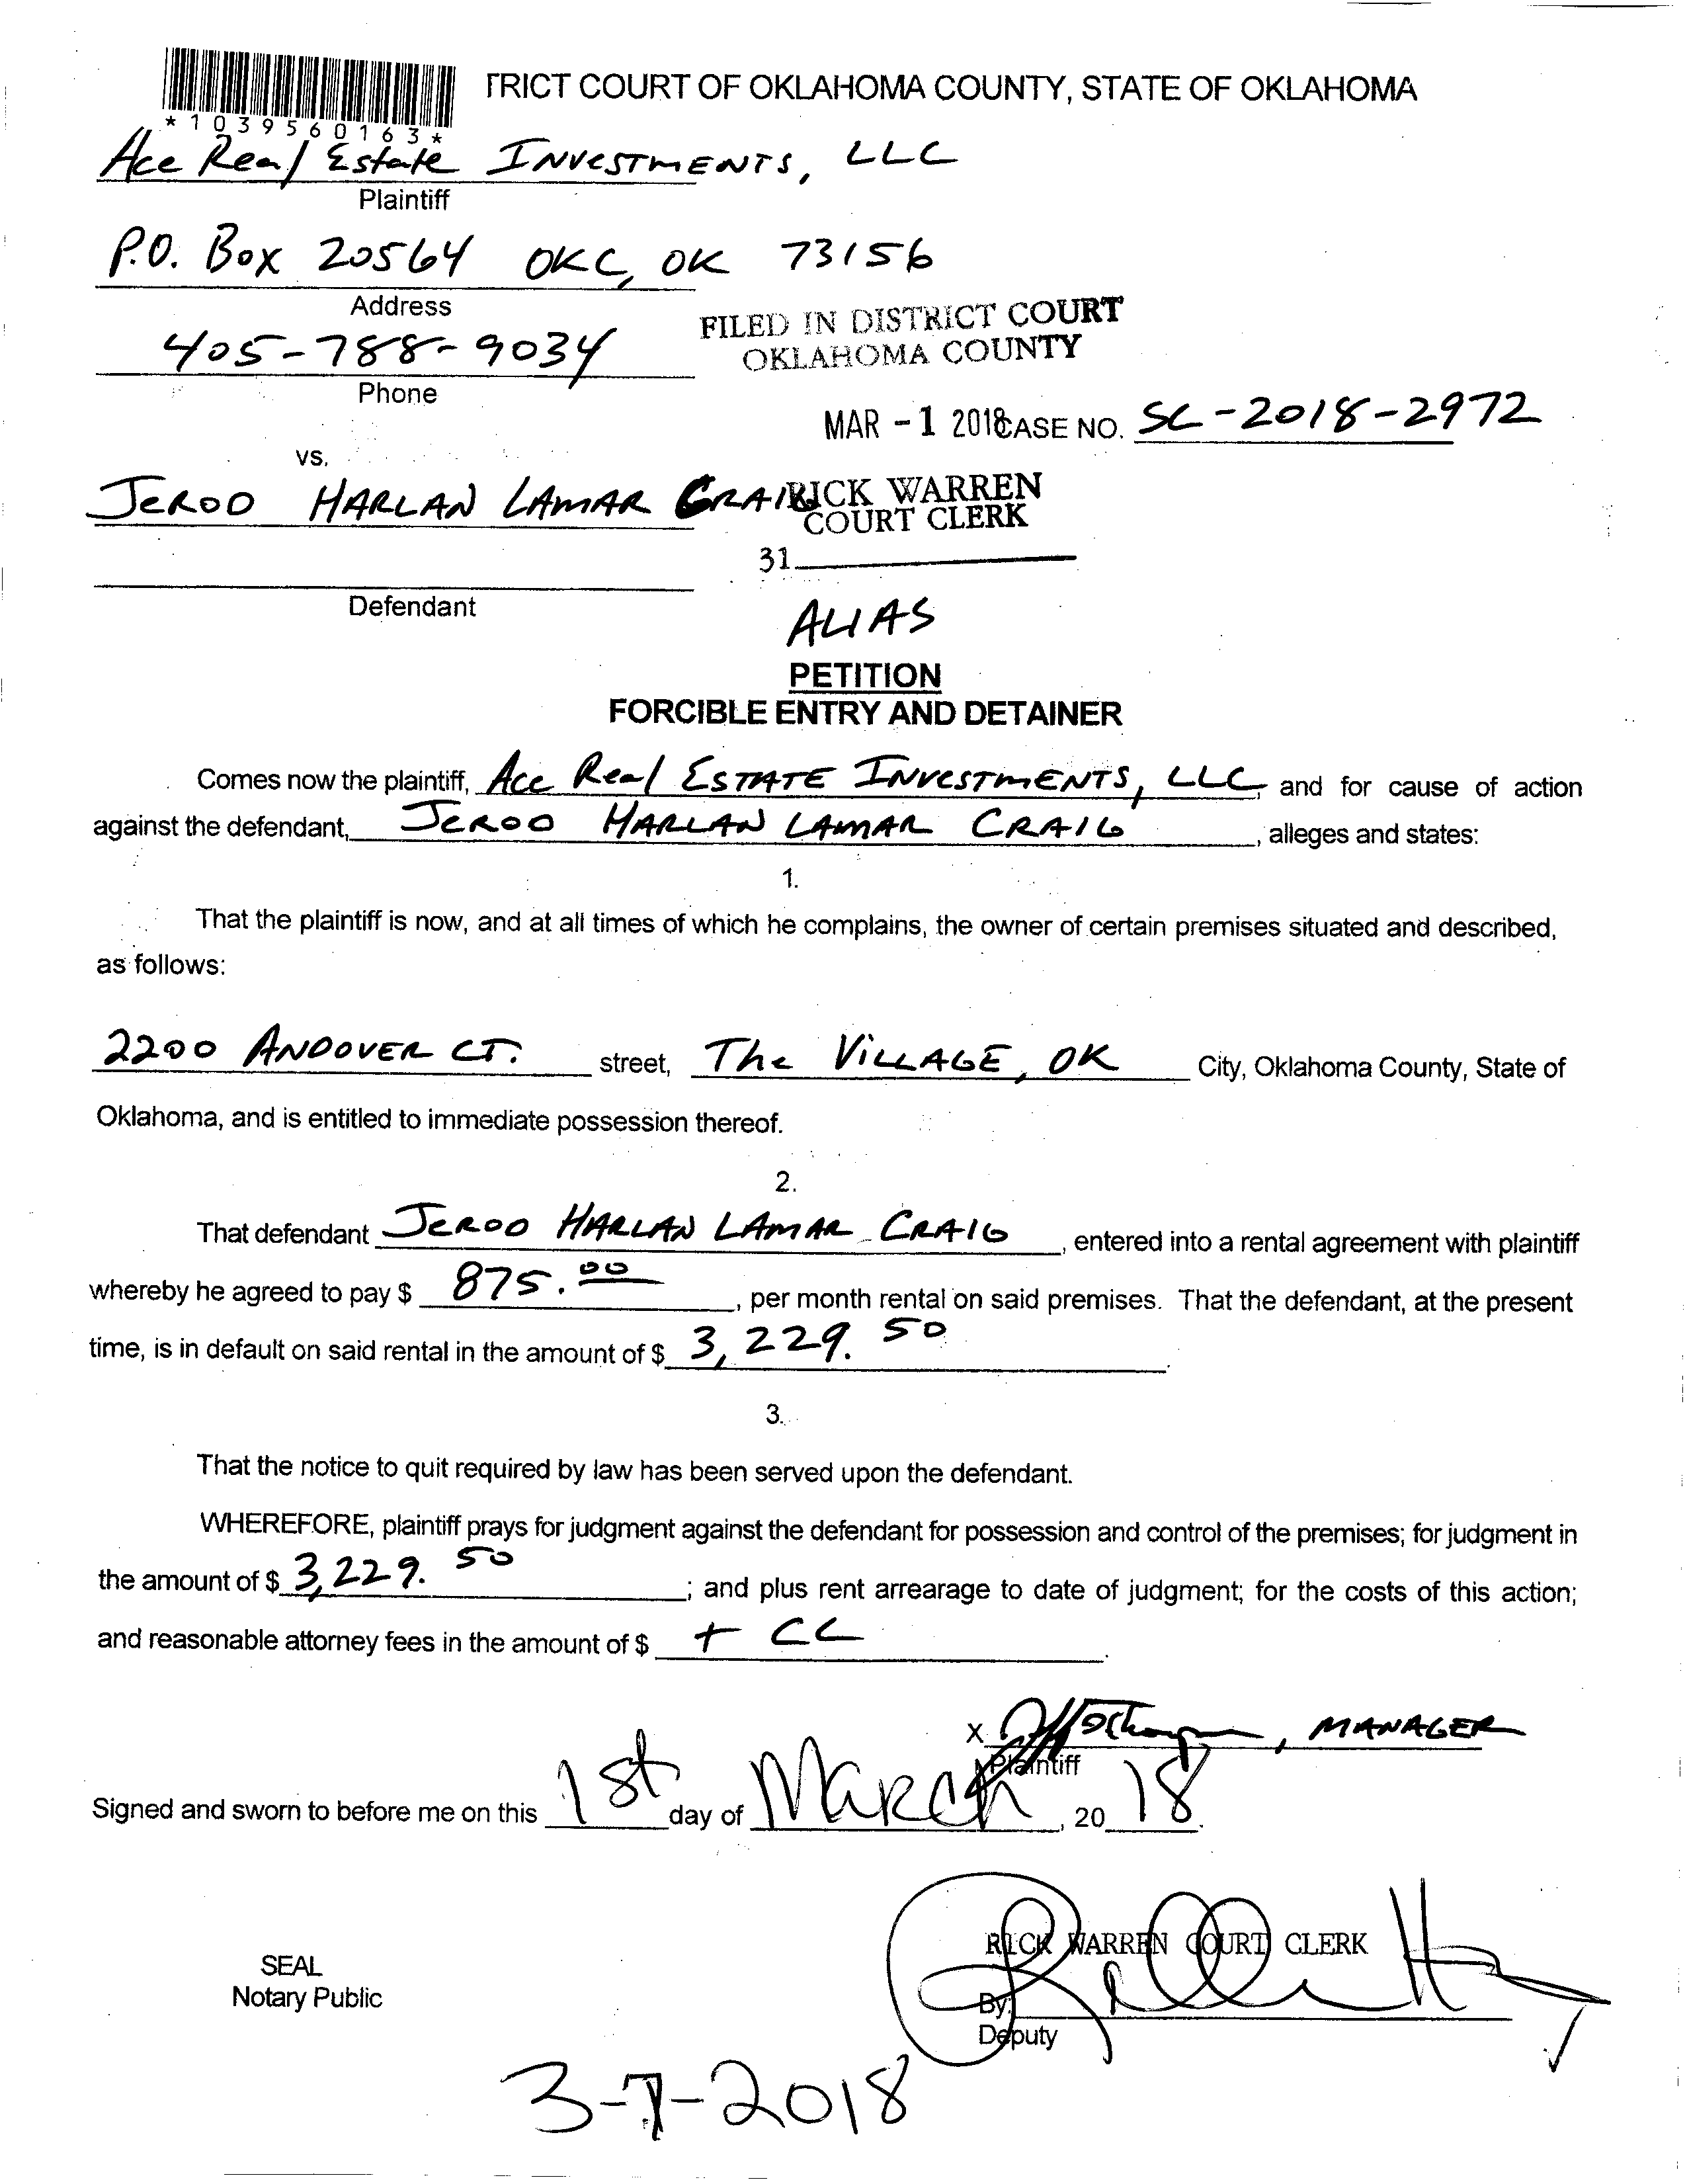 TRICT COURT OF OKLAHOMA COUNTY, STATE OF OKLAHOMA
*1039560163*
Ace Real Estate Investments, LLC
Plaintiff
P.O. Box 20564 OKC, OK 73156
Address
FILED IN DISTRICT COURT
OKLAHOMA COUNTY
405-788-9034
Phone
MAR -1 2018 CASE NO. SC-2018-2972
vs.
JEROD HARLAN LAMAR CRAIG
RICK WARREN
COURT CLERK
31
Defendant
ALIAS
PETITION
FORCIBLE ENTRY AND DETAINER
Comes now the plaintiff, Ace Real ESTATE INVESTMENTS, LLC, and for cause of action
against the defendant, JEROD HARLAN LAMAR CRAIG, alleges and states:
1.
That the plaintiff is now, and at all times of which he complains, the owner of certain premises situated and described,
as follows:
2200 ANDOVER CT. street, The VILLAGE, OK City, Oklahoma County, State of
Oklahoma, and is entitled to immediate possession thereof.
2.
That defendant JEROD HARLAN LAMAR CRAIG, entered into a rental agreement with plaintiff
whereby he agreed to pay $ 875.00, per month rental on said premises. That the defendant, at the present
time, is in default on said rental in the amount of $ 3,229.50.
3.
That the notice to quit required by law has been served upon the defendant.
WHEREFORE, plaintiff prays for judgment against the defendant for possession and control of the premises; for judgment in
the amount of $ 3,229.50; and plus rent arrearage to date of judgment; for the costs of this action;
and reasonable attorney fees in the amount of $ + CC.
X , MANAGER
Plaintiff
Signed and sworn to before me on this 1st day of MARCH, 20 18.
RICK WARREN COURT CLERK
SEAL
Notary Public
By:
Deputy
3-7-2018